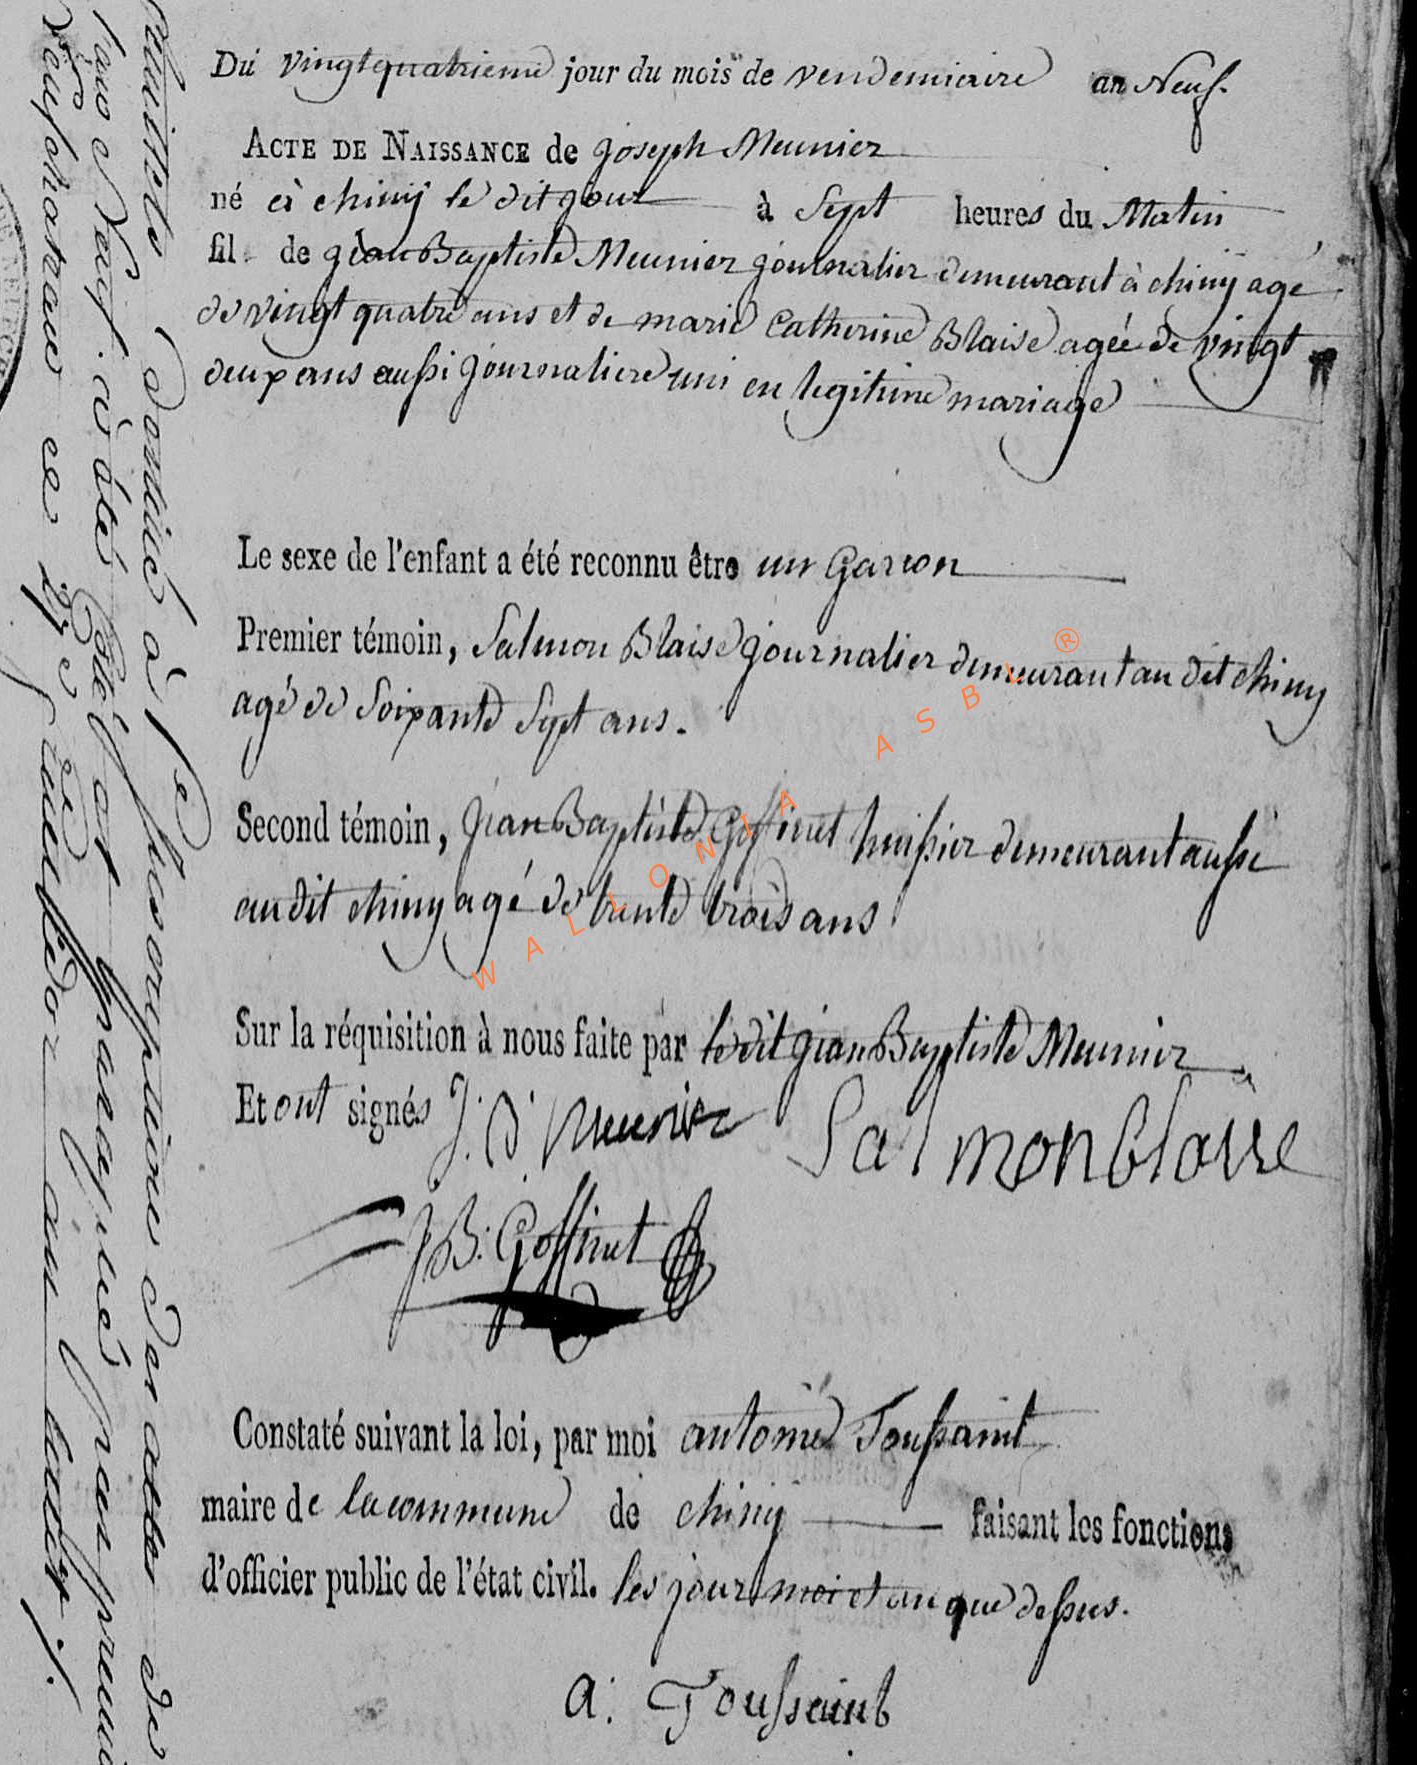 Du vingtquatrieme jour du mois de vendemiaire an Neuf.
ACTE DE NAISSANCE de joseph Meunier
né à chiny le dit jour à Sept heures du Matin
fil de jean Baptiste Meunier journalier demeurant à chiny agé
de vingt quatre ans et de marie Catherine Blaise agée de vingt
deux ans aussi journaliere uni en legitime mariage
Le sexe de l'enfant a été reconnu être un Garcon
Premier témoin, Salmon Blaise journalier demeurant au dit chiny
agé de Soixante Sept ans.
Second témoin, jean Baptiste Goffinet huissier demeurant aussi
au dit chiny agé de trente trois ans
Sur la réquisition à nous faite par ledit jean Baptiste Meunier
Et ont signés J. B. Meunier Salmon blaise
J B. Goffinet
Constaté suivant la loi, par moi antoine Toussaint
maire de la commune de chiny faisant les fonctions
d'officier public de l'état civil. les jour moi et an que dessus.
a. Toussaint
destiné à l'inscriptions des actes de
l'an Neuf. a été coté et paraphé par premier
Neufchateau ce
WALLONIA ASBL ®